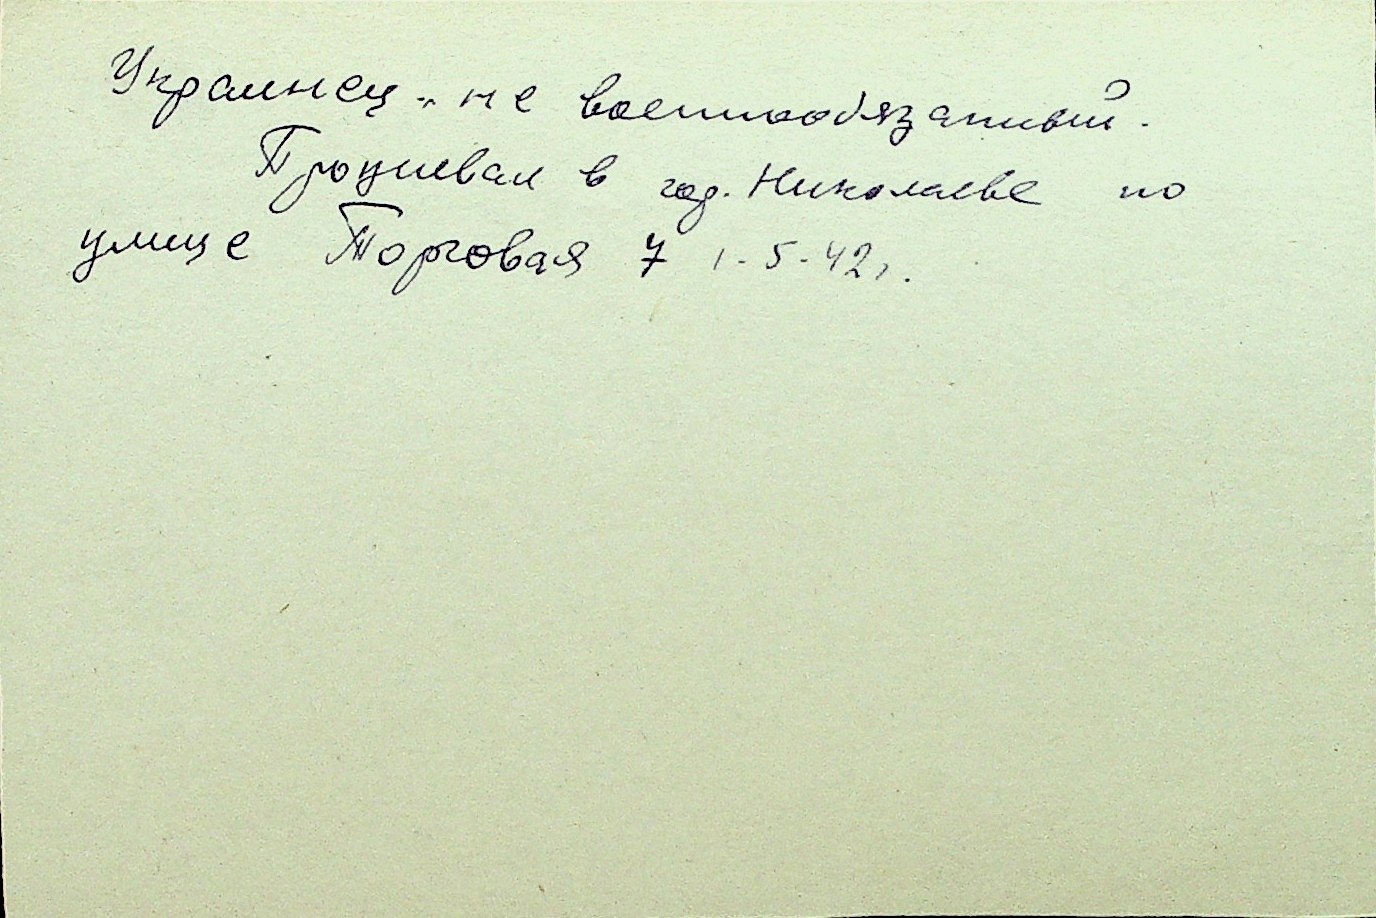 Украинец, не военнообязанный.
Проживал в гор. Николаеве по
улице Торговая 7 1.5.42 г.